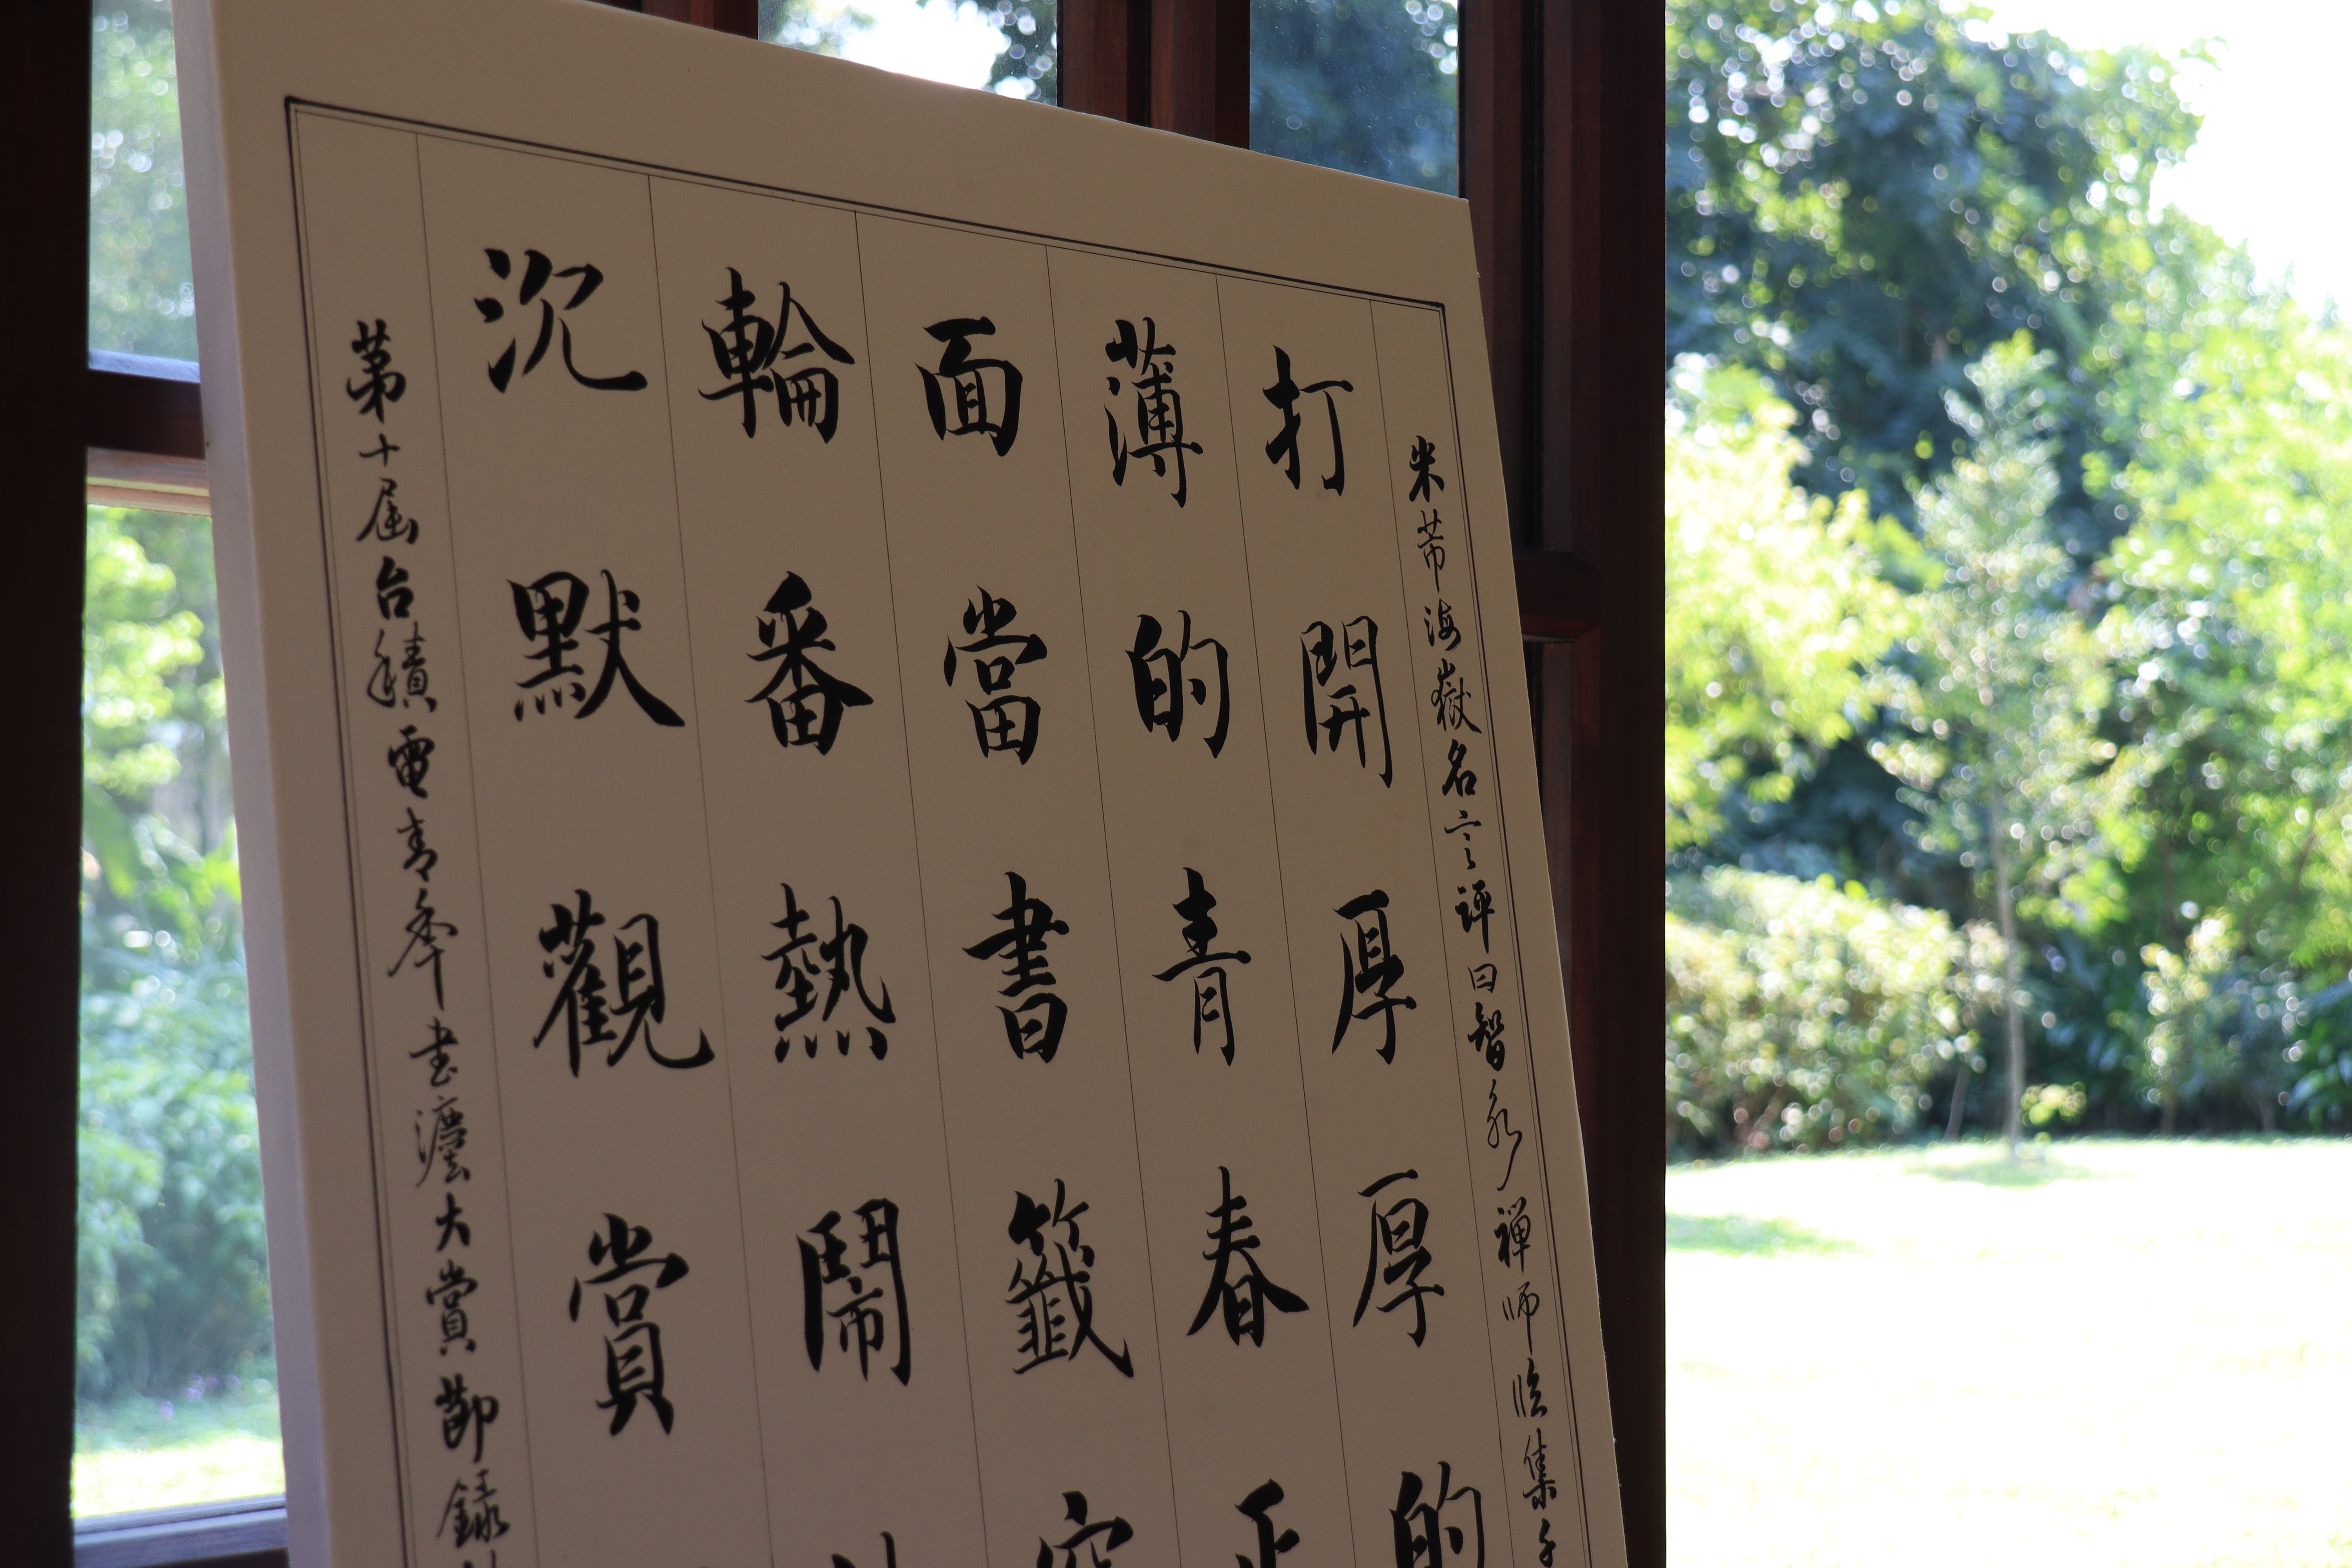 米芾海嶽名言譯曰智永禪師臨集千
打開厚厚的
薄的青春正
面當書籤空
輪番熱鬧
沉默觀賞
第十屆台積電青年書灋大賞節錄